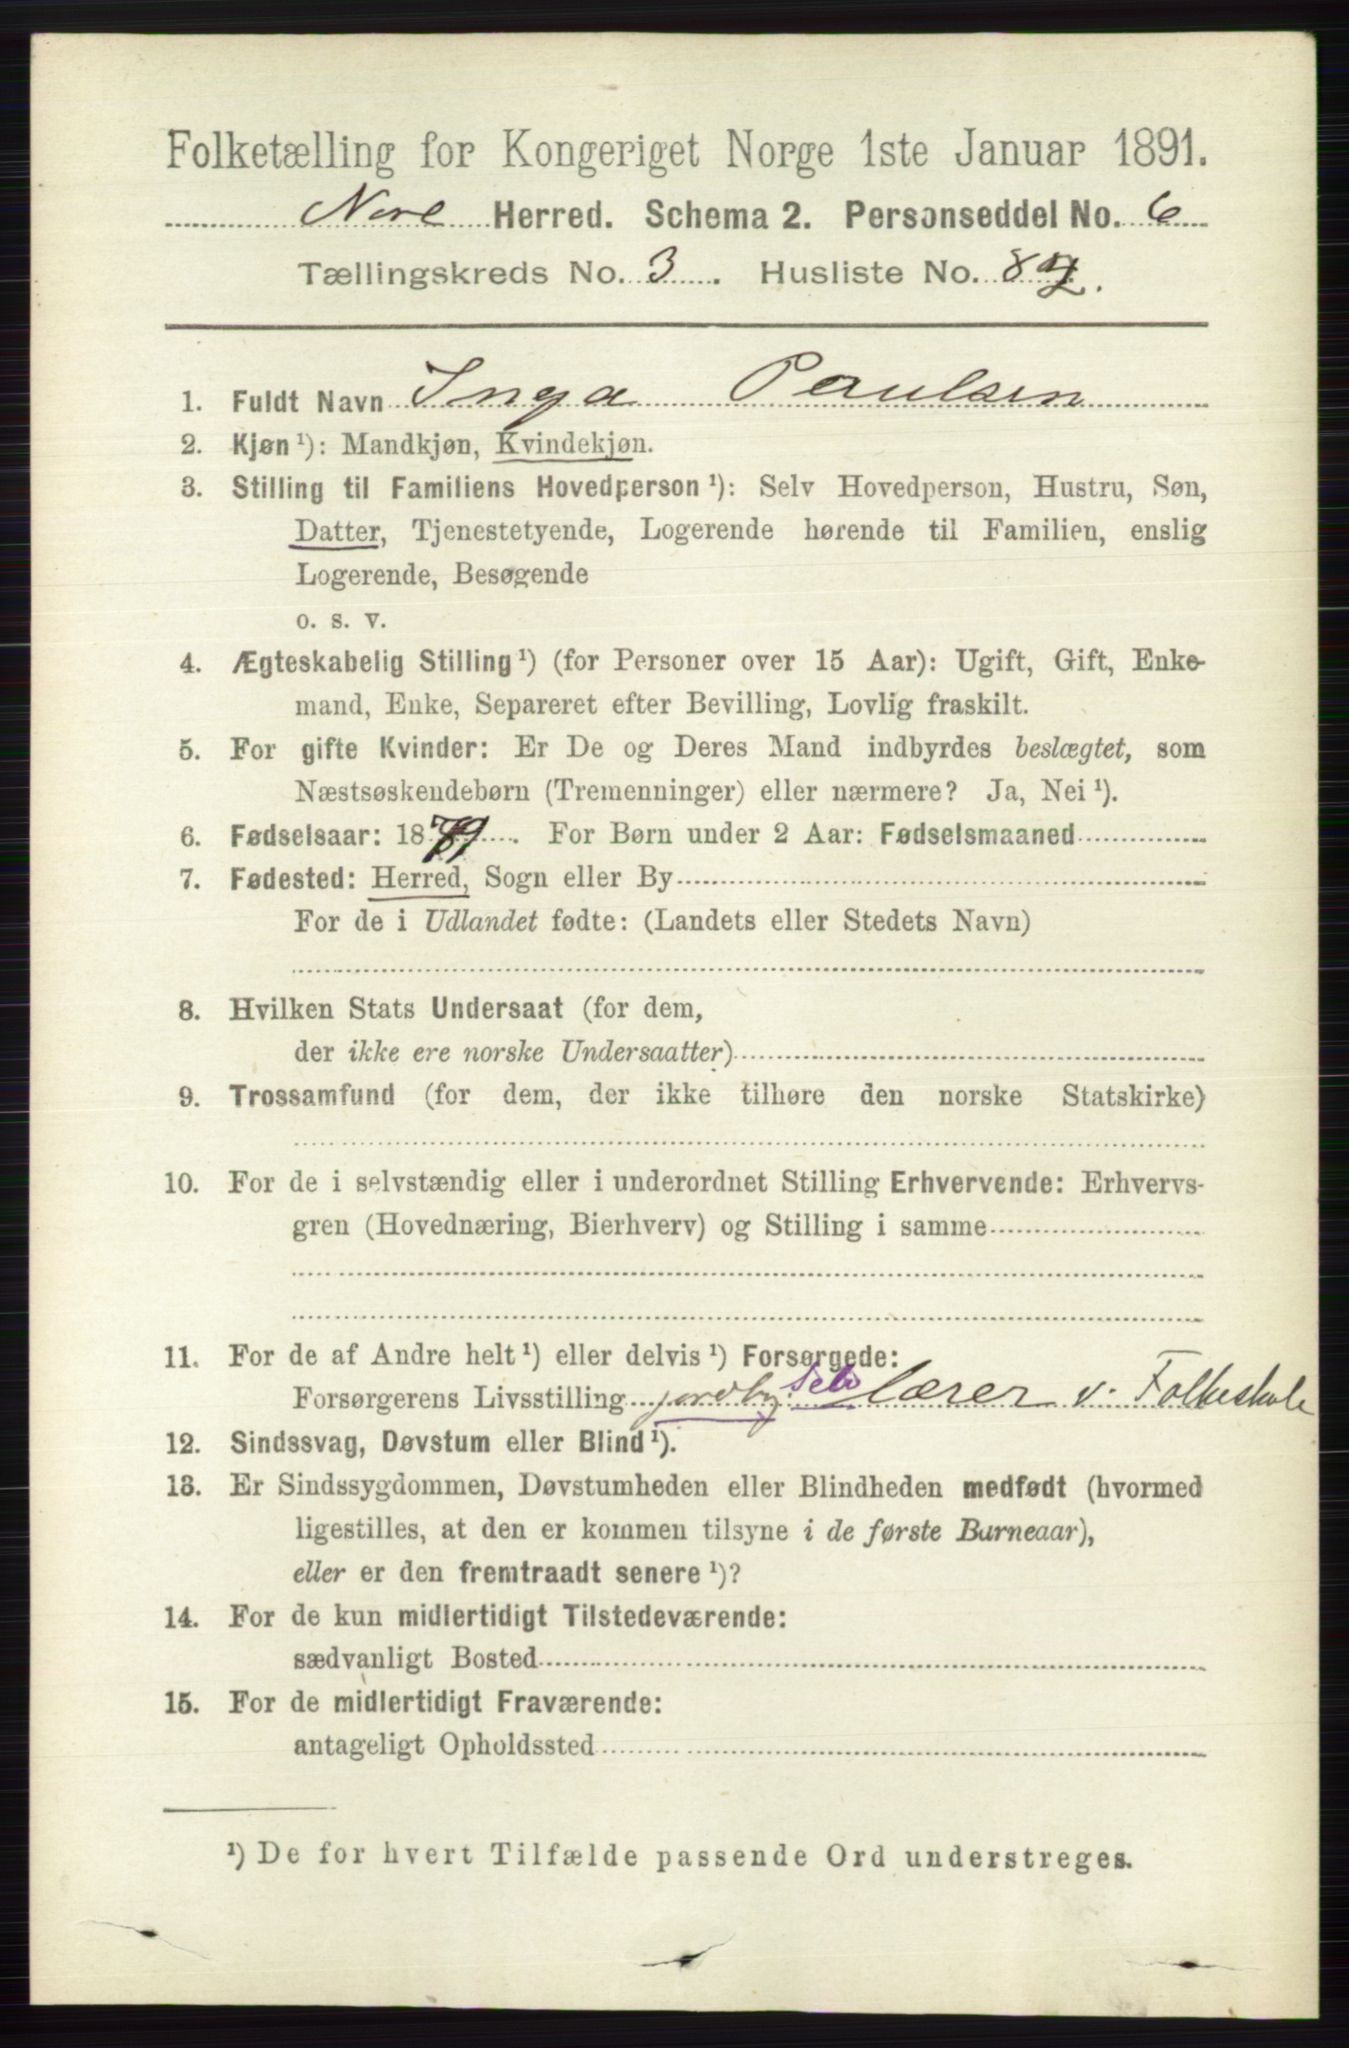 Folketælling for Kongeriget Norge 1ste Januar 1891.
Nore Herred. Schema 2. Personseddel No. 6
Tællingskreds No. 3. Husliste No. 82.
1. Fuldt Navn Inga Paulsen
2. Kjøn ¹): Mandkjøn, Kvindekjøn.
3. Stilling til Familiens Hovedperson ¹): Selv Hovedperson, Hustru, Søn,
Datter, Tjenestetyende, Logerende hørende til Familien, enslig
Logerende, Besøgende
o. s. v.
4. Ægteskabelig Stilling ¹) (for Personer over 15 Aar): Ugift, Gift, Enke-
mand, Enke, Separeret efter Bevilling, Lovlig fraskilt.
5. For gifte Kvinder: Er De og Deres Mand indbyrdes beslægtet, som
Næstsøskendebørn (Tremenninger) eller nærmere? Ja, Nei ¹).
6. Fødselsaar: 1879. For Børn under 2 Aar: Fødselsmaaned
7. Fødested: Herred, Sogn eller By
For de i Udlandet fødte: (Landets eller Stedets Navn)
8. Hvilken Stats Undersaat (for dem,
der ikke ere norske Undersaatter)
9. Trossamfund (for dem, der ikke tilhøre den norske Statskirke)
10. For de i selvstændig eller i underordnet Stilling Erhvervende: Erhvervs-
gren (Hovednæring, Bierhverv) og Stilling i samme
11. For de af Andre helt ¹) eller delvis ¹) Forsørgede:
Forsørgerens Livsstilling jordbr. Selv lærer v. Folkeskole
12. Sindssvag, Døvstum eller Blind ¹).
13. Er Sindssygdommen, Døvstumheden eller Blindheden medfødt (hvormed
ligestilles, at den er kommen tilsyne i de første Barneaar),
eller er den fremtraadt senere ¹)?
14. For de kun midlertidigt Tilstedeværende:
sædvanligt Bosted
15. For de midlertidigt Fraværende:
antageligt Opholdssted
¹) De for hvert Tilfælde passende Ord understreges.